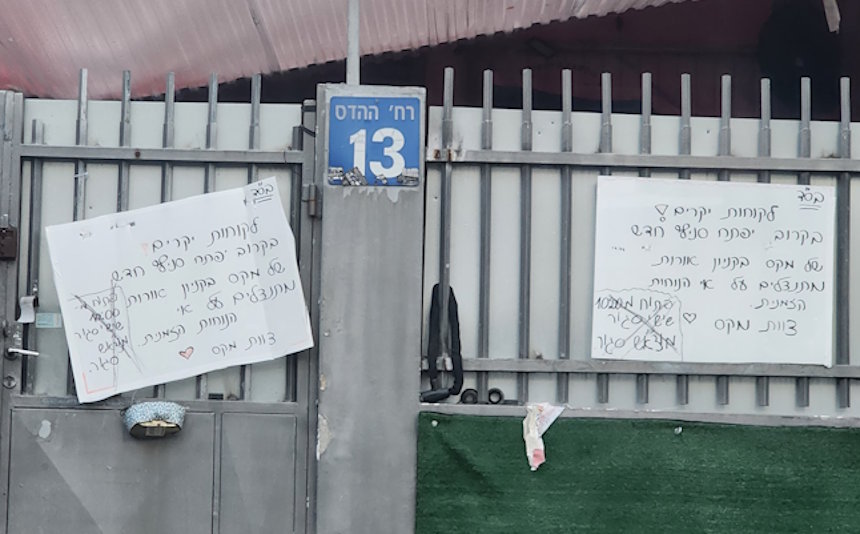 רח' ההדס
13
בס"ד
לקוחות יקרים!
בקרוב יפתח סניף חדש
של מקס בקניון אורות
מתנצלים על אי
הנוחות הזמנית.
צוות מקס
שישי סגור
מוצ"ש
סגור.
בס"ד
לקוחות יקרים!
בקרוב יפתח סניף חדש
של מקס בקניון אורות.
מתנצלים על אי הנוחות
הזמנית.
צוות מקס
פתוח מ 1020
שישי סגור
מוצ"ש סגור